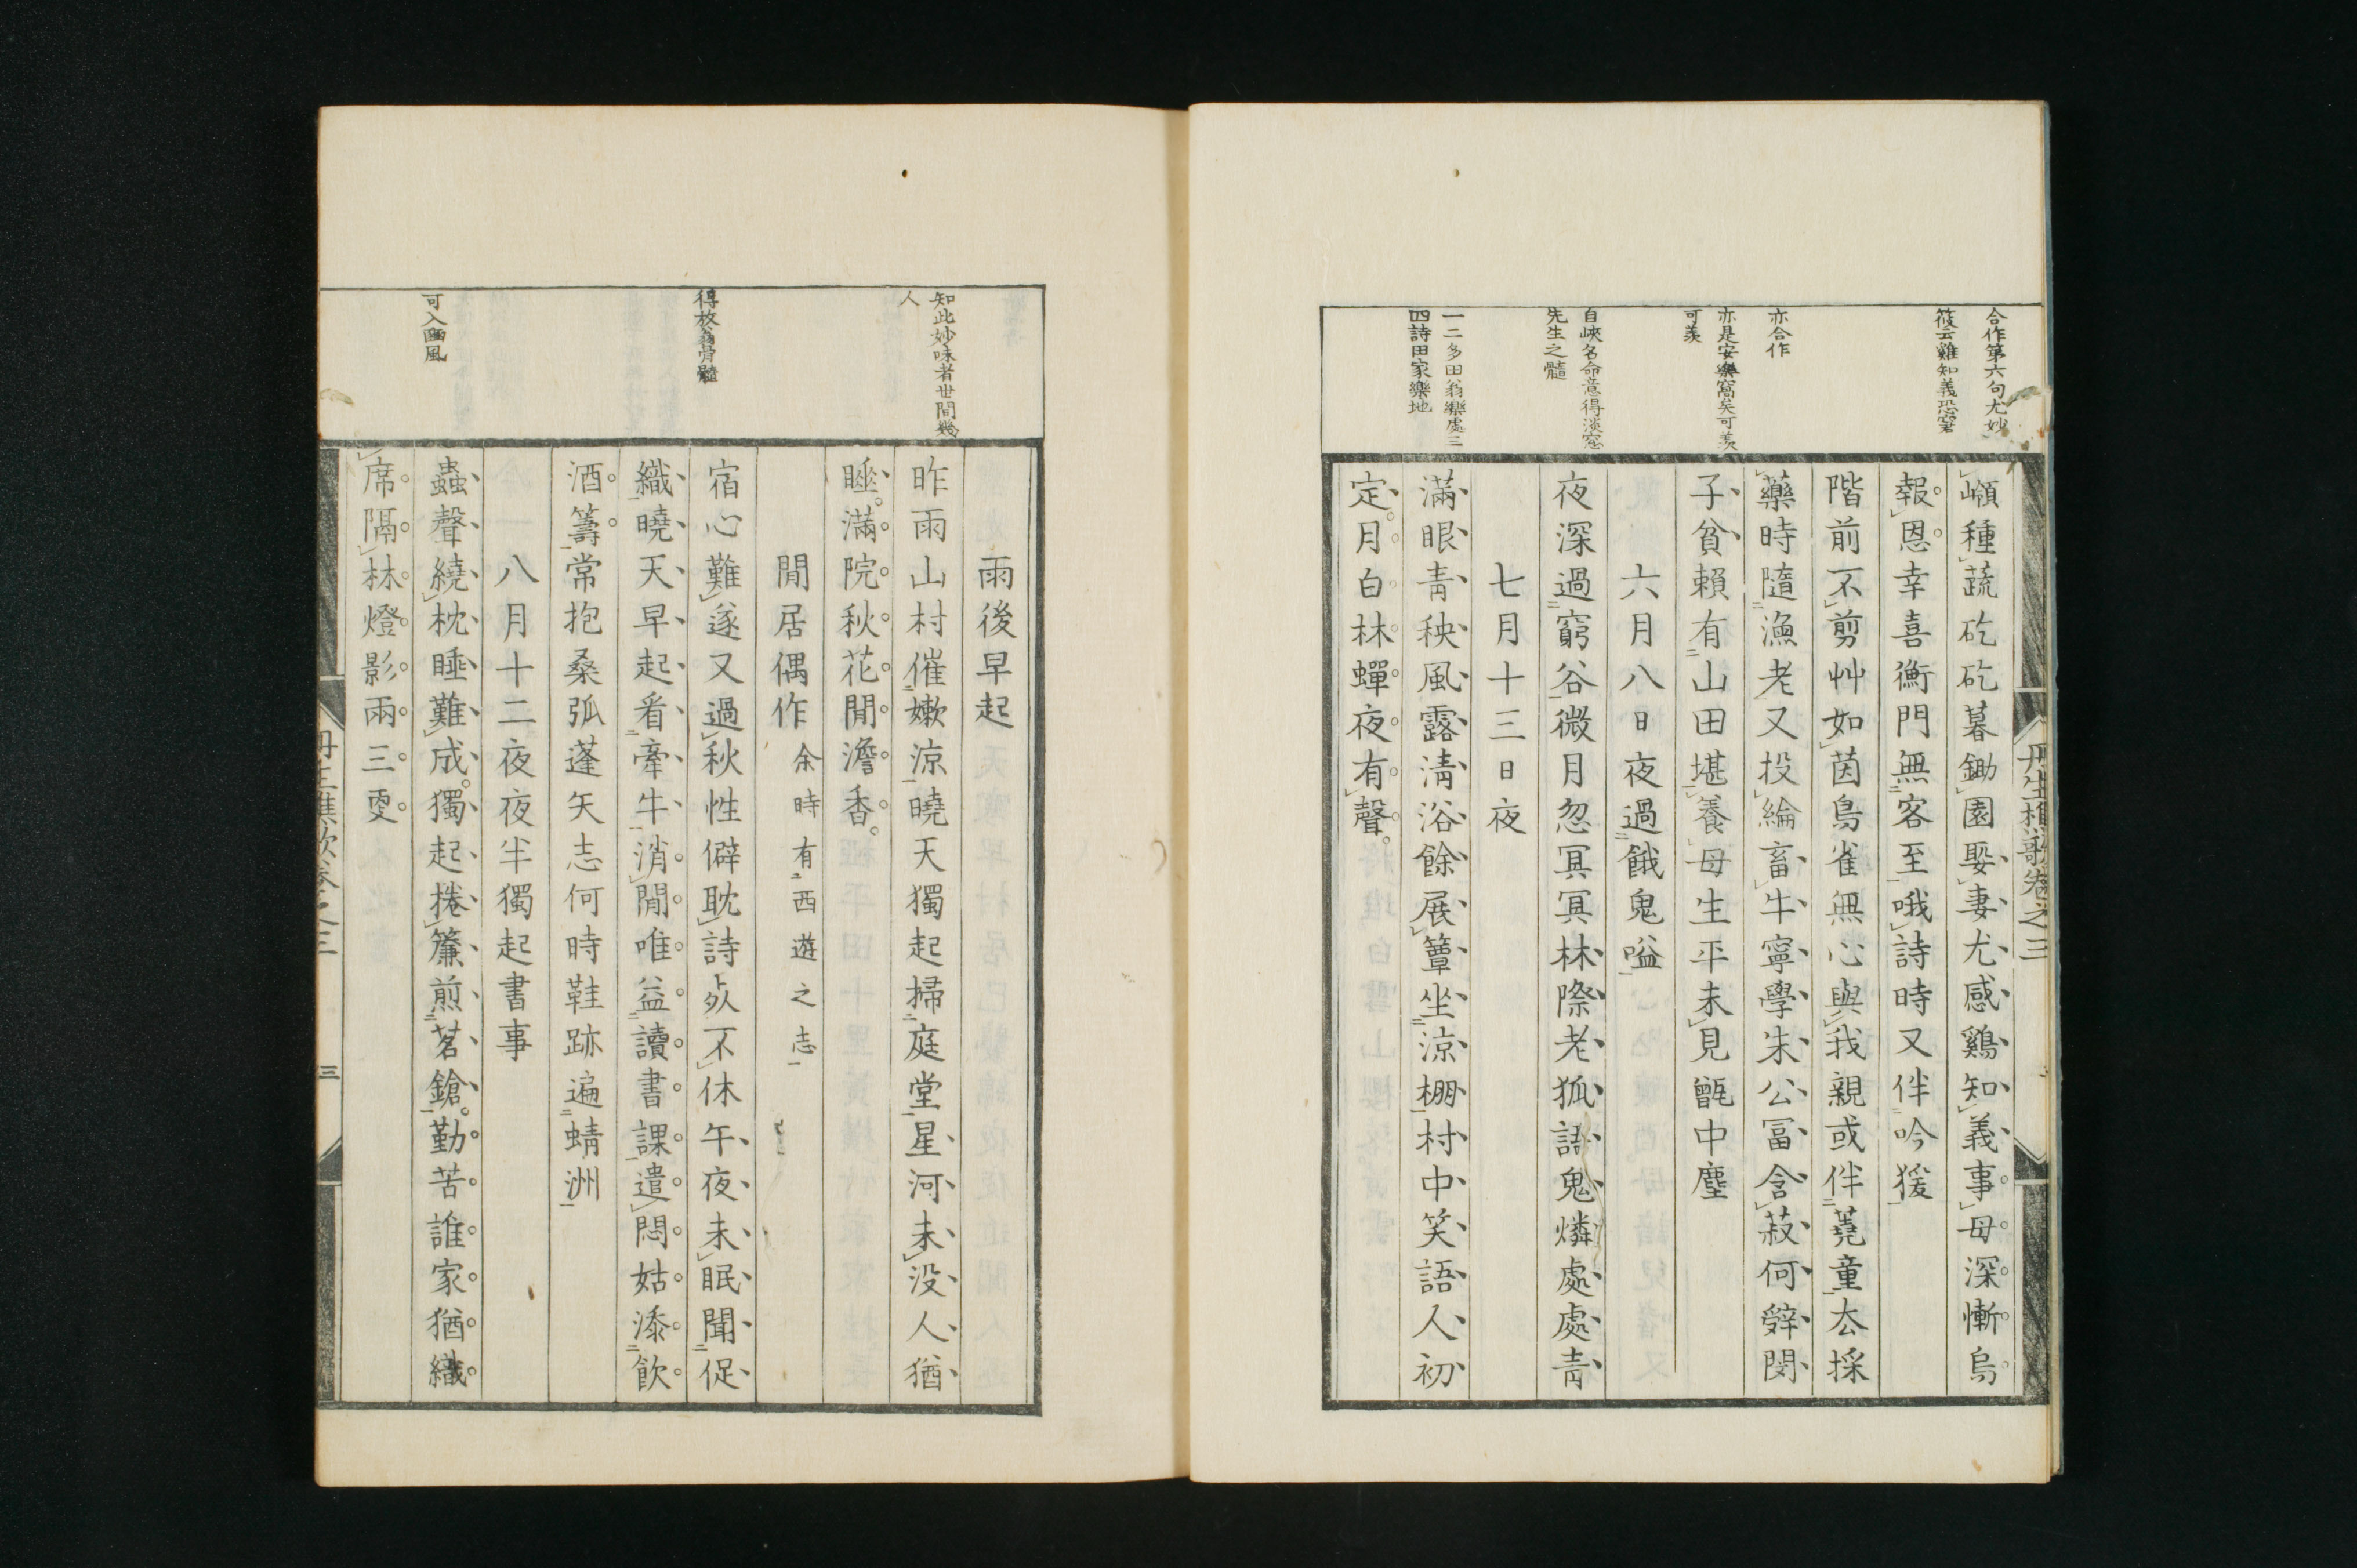 合作第六句尤妙
筱云雞知義恐窘
亦合作
亦是安樂窩矣可羨
可羨
自峽名命意得淡窓
先生之髓
一二多田翁樂處三
四詩田家樂地
巓種蔬矻矻暮鋤園娶妻尤感鷄知義事母深慚烏
報恩幸喜衡門無客至哦詩時又伴吟猨
階前不剪艸如茵鳥雀無心與我親或伴蕘童厺採
藥時隨漁老又投綸畜牛寧學朱公冨含菽何辤閔
子貧賴有山田堪養母生平未見甑中塵
六月八日夜過餓鬼嗌
夜深過窮谷微月忽冥冥林際老狐語鬼燐處處青
七月十三日夜
滿眼青秧風露淸浴餘展簟坐涼棚村中笑語人初
定月白林蟬夜有聲
丹生樵歌卷之三
知此妙味者世間幾
人
得放翁骨髓
可入豳風
雨後早起
昨雨山村催嫰涼曉天獨起掃庭堂星河未沒人猶
睡滿院秋花閒澹香
閒居偶作 余時有西遊之志
宿心難遂又過秋性僻耽詩夘不休午夜未眠聞促
織曉天早起看牽牛消閒唯益讀書課遣悶姑添飮
酒籌常抱桑弧蓬矢志何時鞋跡遍蜻洲
八月十二夜夜半獨起書事
蟲聲繞枕睡難成獨起捲簾煎茗鎗勤苦誰家猶織
席隔林燈影兩三更
丹生樵歌卷之三
三